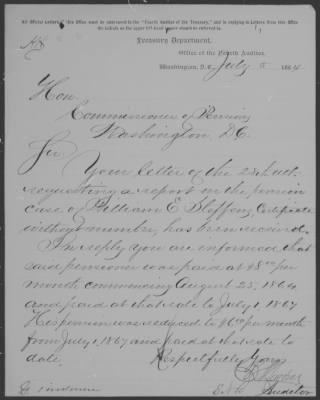 All Official Letters of this Office must be addressed to the "Fourth Auditor of the Treasury," and in replying to Letters from this Office
the initials on the upper left-hand corner should be referred to.
Treasury Department,
Office of the Fourth Auditor,
Washington, D.C., July 5 1884
Hon.
Commissioner of Pensions
Washington D.C.
Sir
Your letter of the 28th ult.
requesting a report in the pension
case of William E Steffens, Certificate
without number, has been received.
In reply you are informed that
said pensioner was paid at $8 00 per
month commencing August 25, 1864
and paid at that rate to July 1, 1867
His pension was reduced to $6 00 per month
from July 1, 1867 and paid at that rate to
date.
Respectfully Yours
Auditor